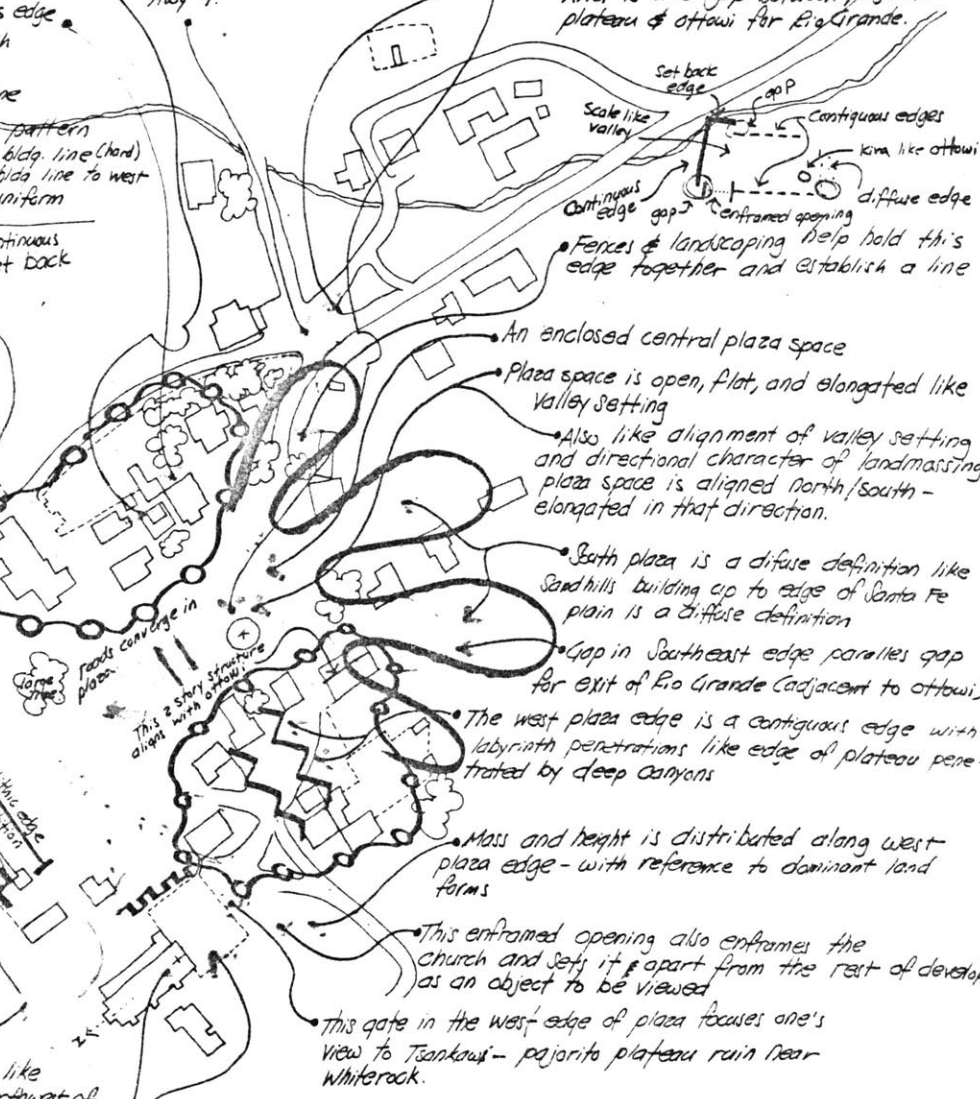 s edge
Hwy
plateau & ottowi for Rio Grande.
pattern
bldg. line (hard)
bldg line to west
uniform
ntinuous
et back
Set back
edge
gap
Scale like
valley
Contiguous edges
kiva like ottowi
diffuse edge
Continuous
edge
gap
enframed opening
Fences & landscaping help hold this
edge together and establish a line
An enclosed central plaza space
Plaza space is open, flat, and elongated like
valley setting
Also like alignment of valley setting
and directional character of landmassing
plaza space is aligned north/south -
elongated in that direction.
South plaza is a difuse definition like
Sandhills building up to edge of Santa Fe
plain is a diffuse definition
Gap in Southeast edge paralles gap
for exit of Rio Grande (adjacent to ottowi)
The west plaza edge is a contiguous edge with
labyrinth penetrations like edge of plateau pene-
trated by deep canyons
Mass and height is distributed along west
plaza edge - with reference to dominant land
forms
This enframed opening also enframes the
church and sets it apart from the rest of develop
as an object to be viewed
This gate in the west edge of plaza focuses one's
view to Tsankawi - pajorito plateau ruin near
Whiterock.
roads converge in
plaza
large
tree
This 2 story structure
aligns with ottowi
thic edge
like